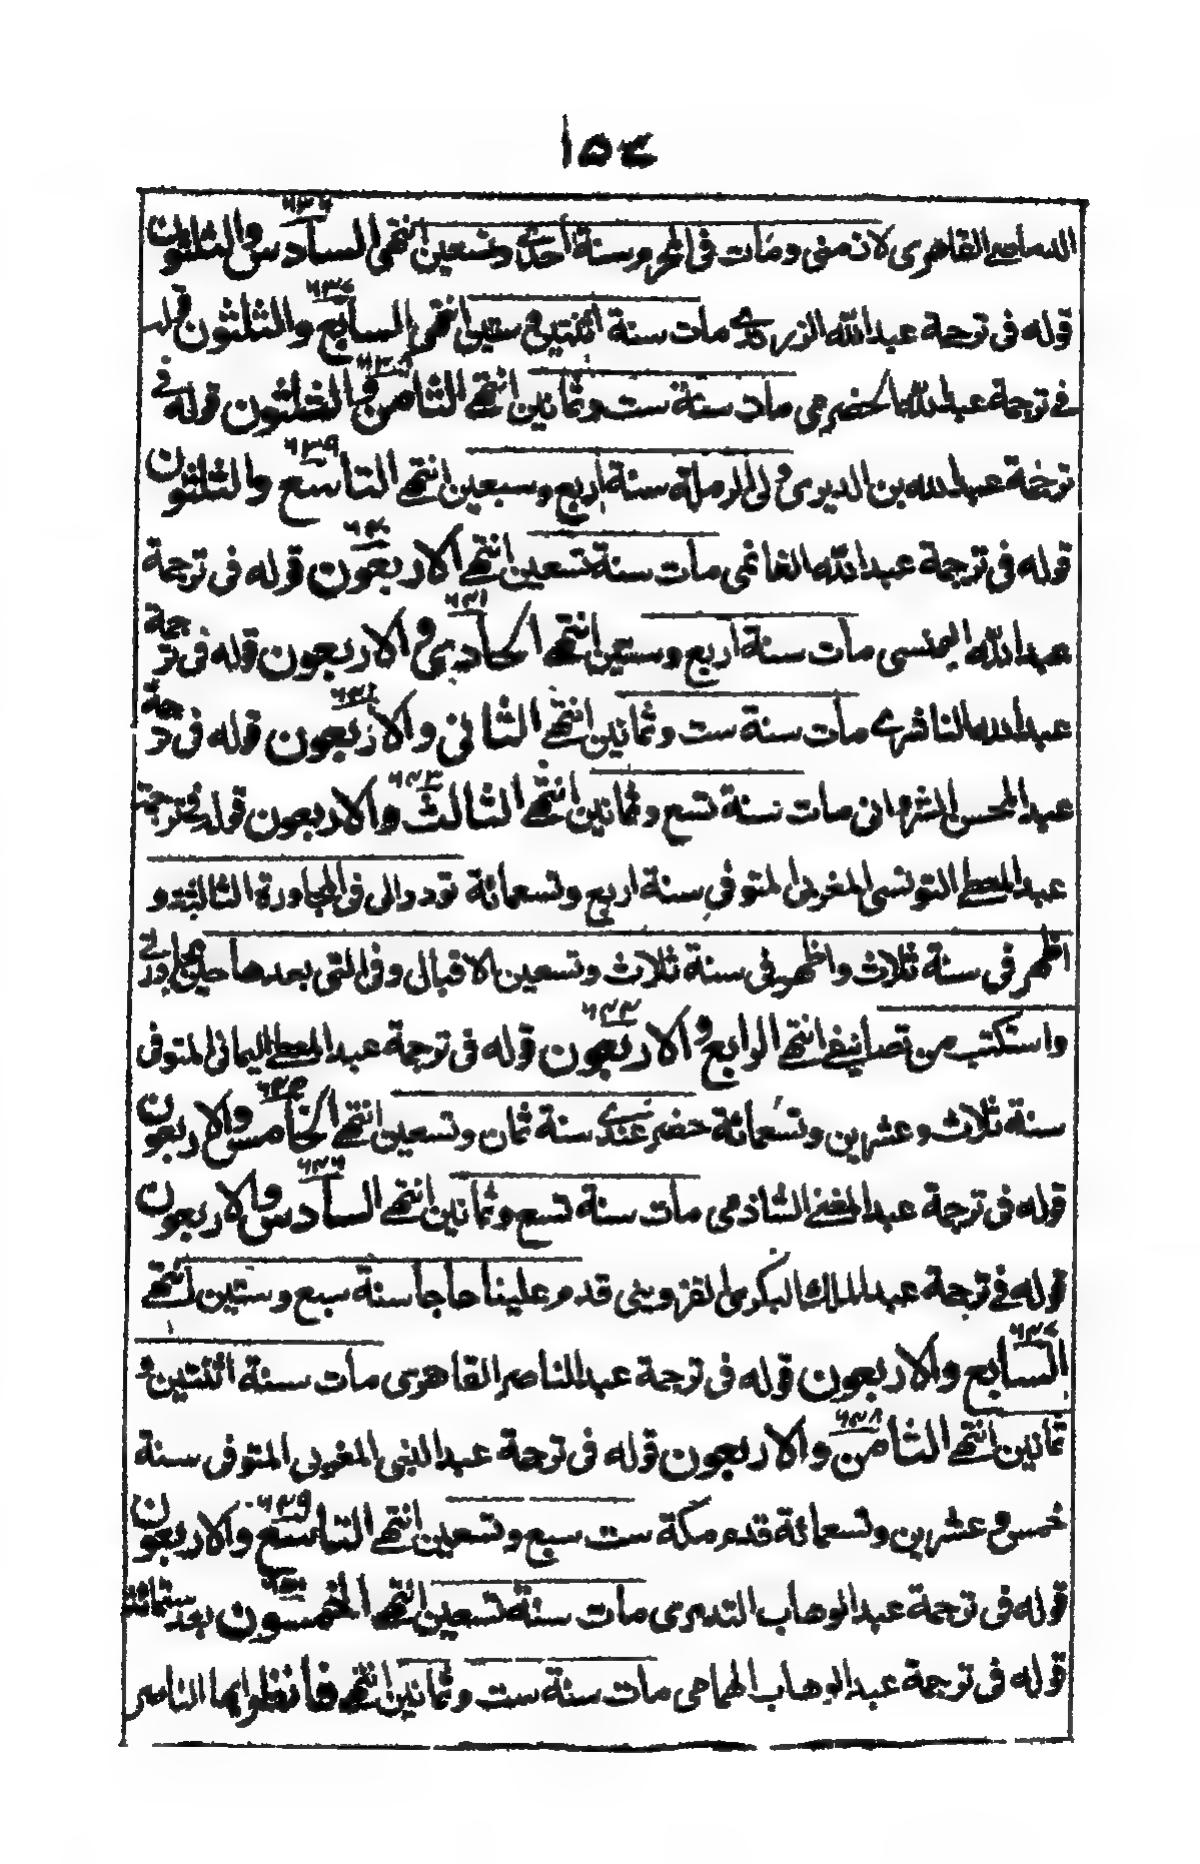 ١٥٤
القاهرى لازمنى ومات فى المحرم سنة أحدى وتسعين انتهى السادس والثلثون
٦٣٦
قوله فى ترجمة عبدالله الزرعى مات سنة اثنتين وستين انتهى السابع والثلثون قوله
٦٣٧
فى ترجمة عبدالله الحضرمى مات سنة ست وثمانين انتهى الثامن والثلثون قوله فى
٦٣٨
ترجمة عبدالله بن الديرى ولى الرملة سنة اربع وسبعين انتهى التاسع والثلثون
٦٣٩
قوله فى ترجمة عبدالله الغانمى مات سنة تسعين انتهى الاربعون قوله فى ترجمة
٦٤٠
عبدالله اليمنسى مات سنة اربع وستين انتهى الحادى والاربعون قوله فى ترجمة
٦٤١
عبدالله الناشرى مات سنة ست وثمانين انتهى الثانى والاربعون قوله فى ترجمة
٦٤٢
عبدالمحسن الشروانى مات سنة تسع وثمانين انتهى الثالث والاربعون قوله فى ترجمة
٦٤٣
عبدالمعطى التونسى المغربى المتوفى سنة اربع وتسعمائة تودد الى فى المجاورة الثالثة و
اظهر فى سنة ثلاث واظهر فى سنة ثلاث وتسعين الاقبال وفى التى بعدها
واستكتب من تصانيفى انتهى الرابع والاربعون قوله فى ترجمة عبدالمعطى اليمانى المتوفى
٦٤٤
سنة ثلاث وعشرين وتسعمائة حضر عندى سنة ثمان وتسعين انتهى الخامس والاربعون
٦٤٥
قوله فى ترجمة عبدالمغنى الشاذمى مات سنة تسع وثمانين انتهى السادس والاربعون
٦٤٦
قوله فى ترجمة عبدالملك البكرى القزوينى قدم علينا حاجا سنة سبع وستين انتهى
السابع والاربعون قوله فى ترجمة عبدالناصر القاهرى مات سنة اثنتين و
٦٤٧
ثمانين انتهى الثامن والاربعون قوله فى ترجمة عبدالنبى المغربى المتوفى سنة
٦٤٨
خمس وعشرين وتسعمائة قدم مكة ست سبع وتسعين انتهى التاسع والاربعون
٦٤٩
قوله فى ترجمة عبدالوهاب التدمرى مات سنة تسعين انتهى الخمسون بعد ستمائة
٦٥٠
قوله فى ترجمة عبدالوهاب الهمامى مات سنة ست وثمانين انتهى فانظر ايها الناصر